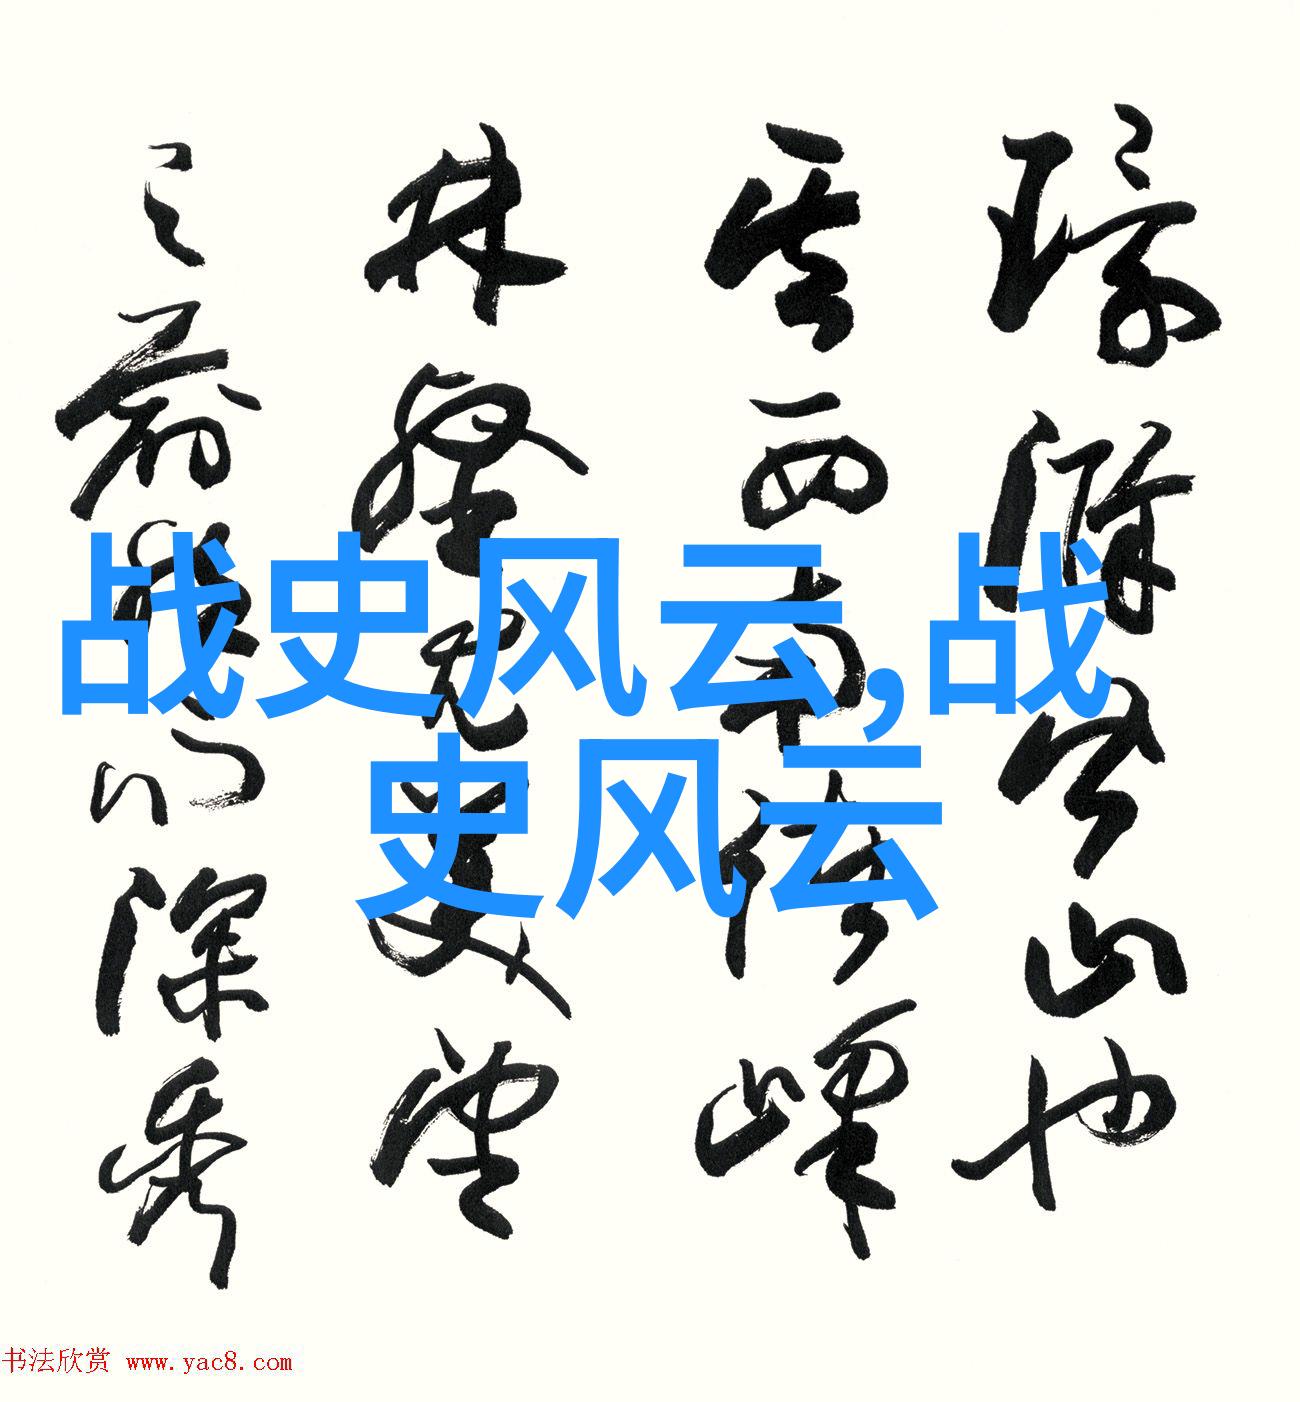 環滁皆山也
其西南諸峰
林壑尤美望
之蔚然而深秀
战史风云,战
史风云
书法欣赏 www.yac8.com